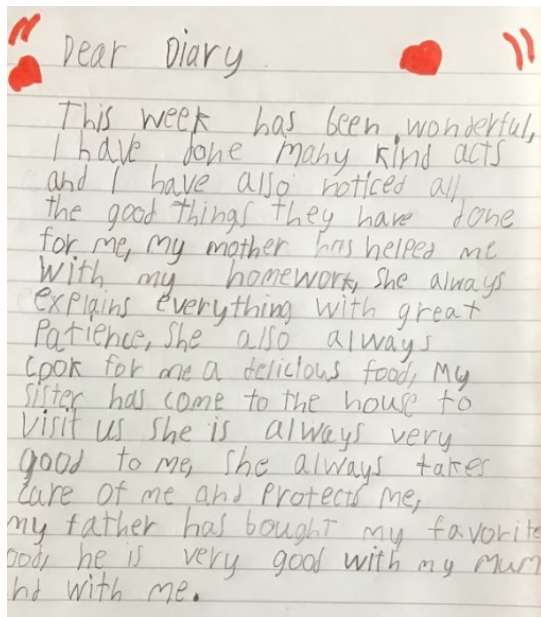 Dear Diary
This week has been wonderful,
I have done many kind acts
and I have also noticed all
the good things they have done
for me, my mother has helped me
with my homework, she always
explains everything with great
Patience, she also always
cook for me a delicious food, My
sister has come to the house to
visit us she is always very
good to me, she always takes
care of me and Protects me,
my father has bought my favorite
ood, he is very good with my Mum
nd with me.